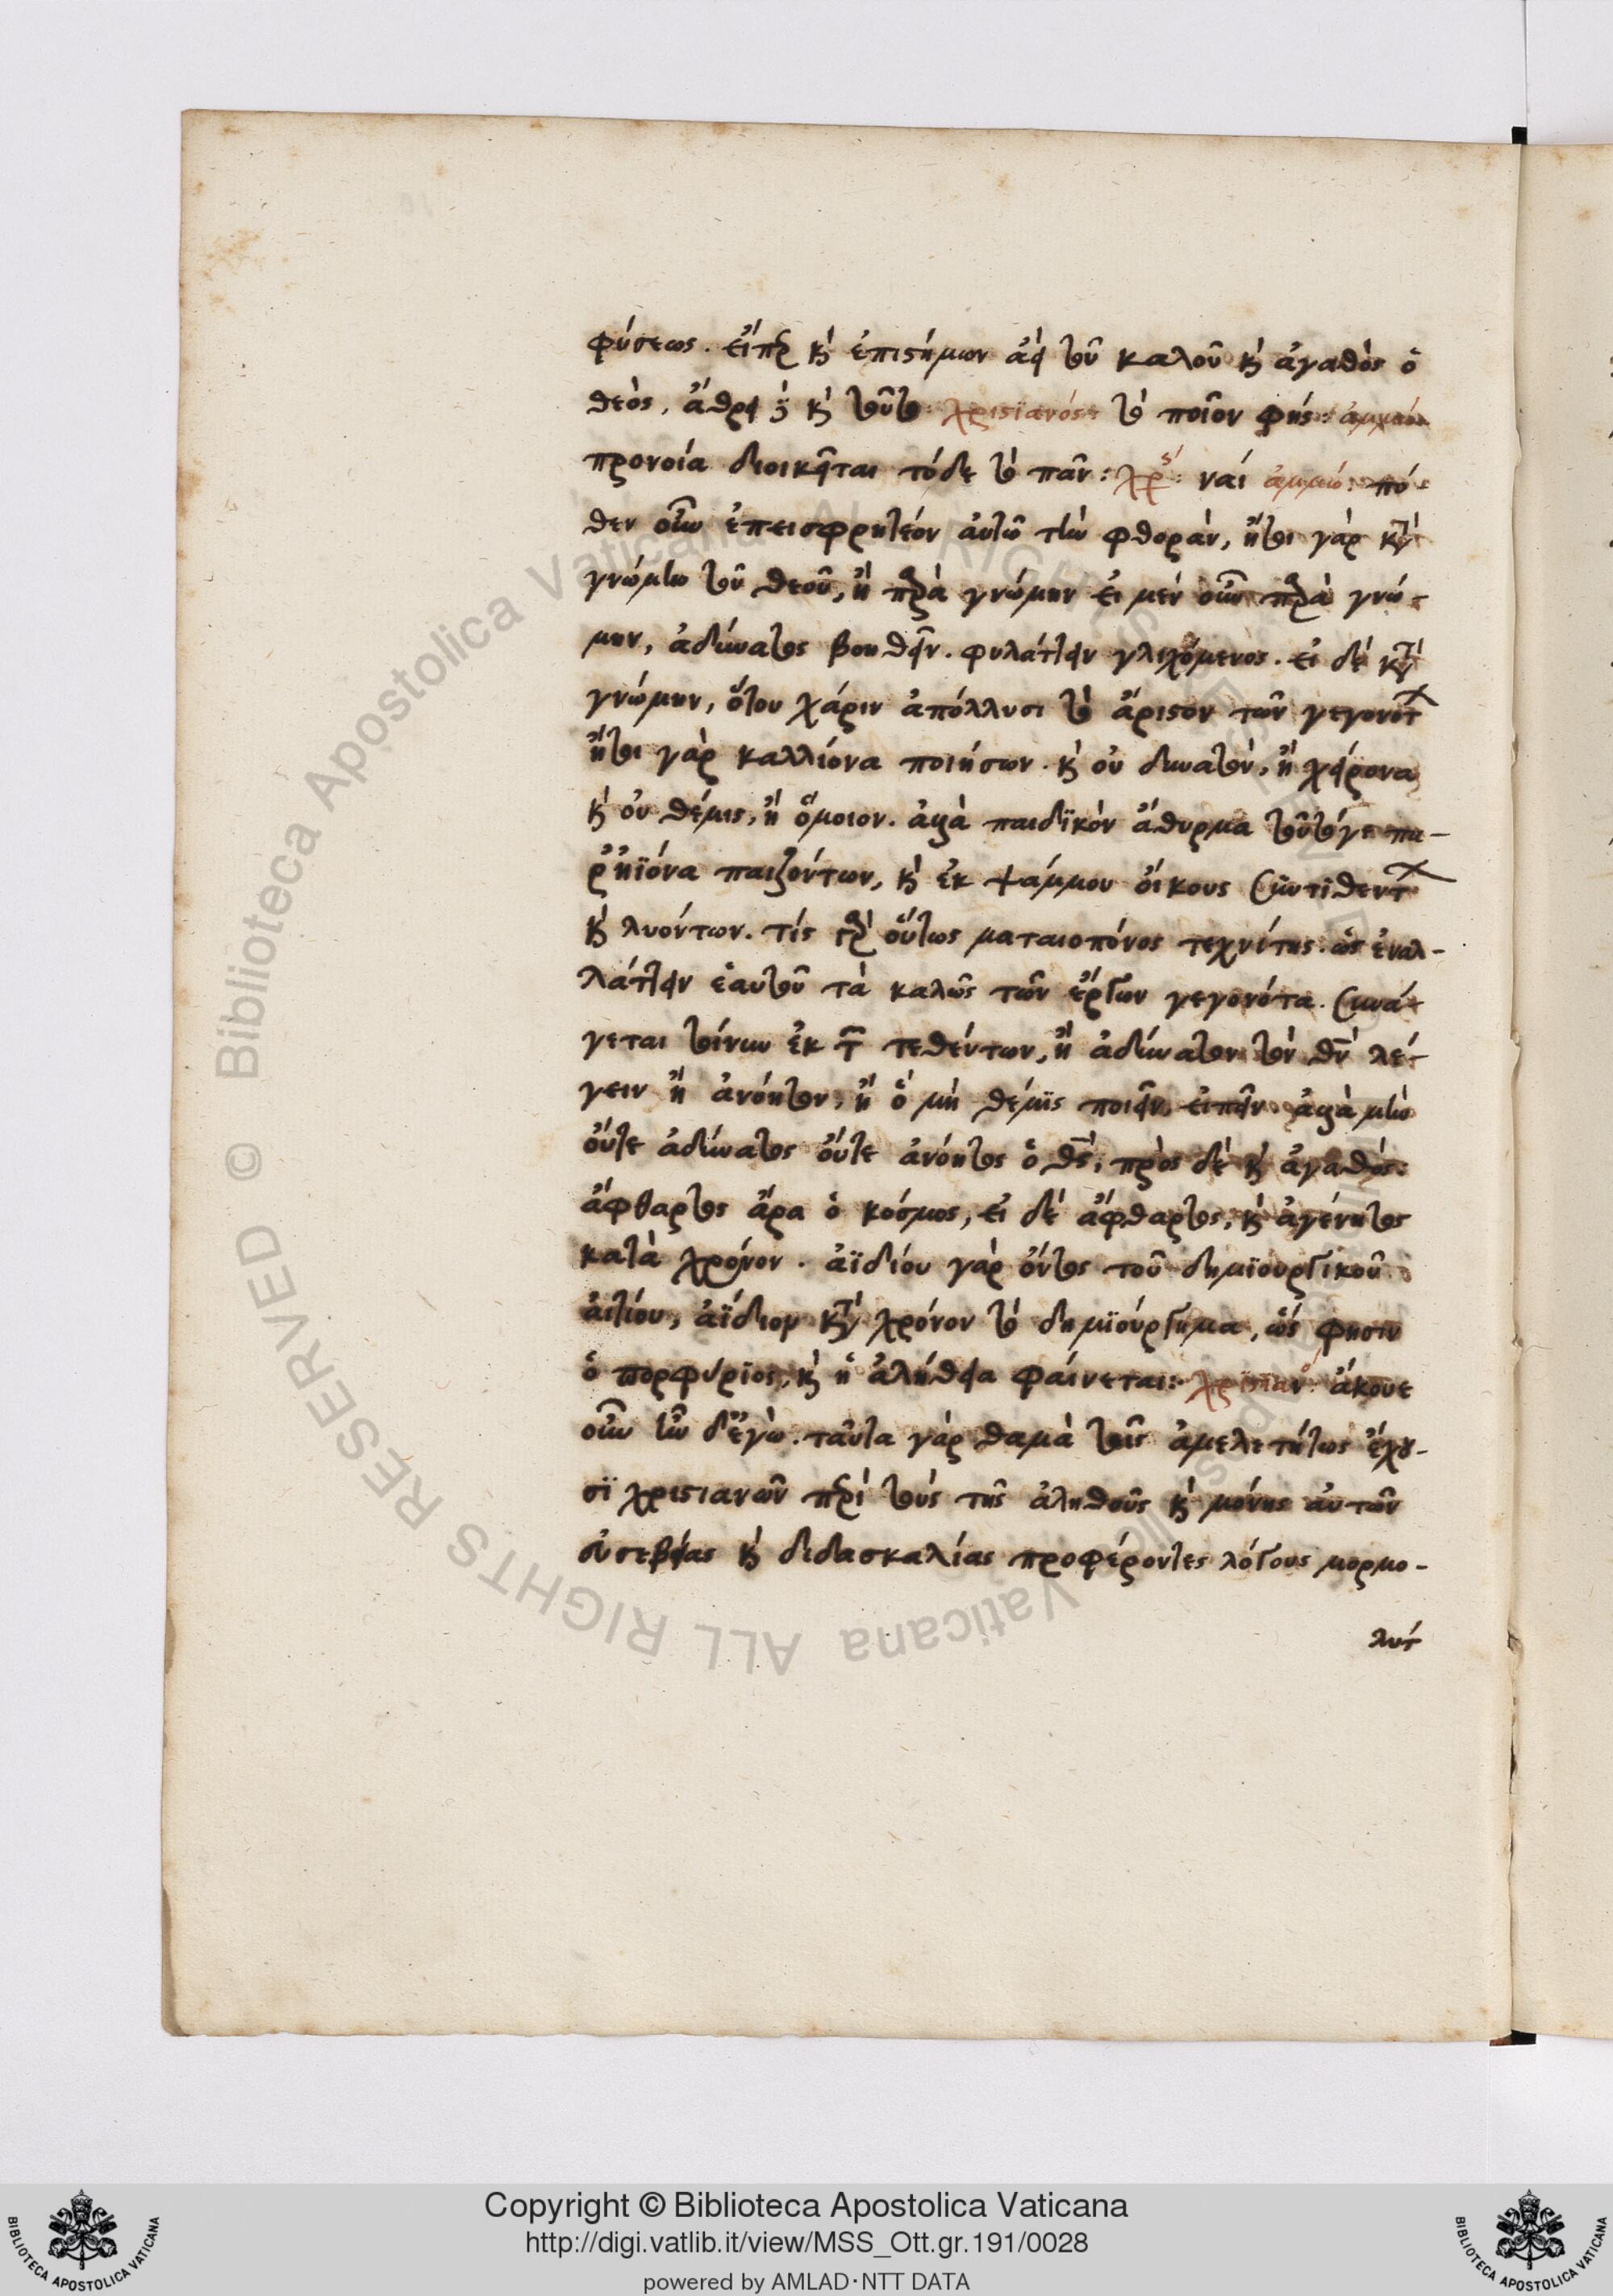 φύσεως. εἴπερ καὶ ἐπιστήμων ἀεὶ τοῦ καλοῦ καὶ ἀγαθὸς ὁ
θεὸς, ἄθρει δὲ καὶ τοῦτο χριστϊανός: τὸ ποῖον φής: ἀμμών
προνοία διοικεῖται τόδε τὸ πᾶν: χρστ: ναί ἀμμώ: πό-
θεν οὖν ἐπεισφρητέον αὐτῶ τὴν φθορὰν, ἤτοι γὰρ κατὰ
γνώμην τοῦ θεοῦ, ἢ παρὰ γνώμην εἰ μὲν οὖν παρὰ γνώ-
μην, ἀδύνατος βοηθεῖν. φυλάττειν γλιχόμενος. εἰ δὲ κατὰ
γνώμην, ὅτου χάριν ἀπόλλυσι τὸ ἄριστον τῶν γεγονότ
ἤτοι γὰρ καλλιόνα ποιήσων. καὶ οὐ δυνατὸν, ἢ χείρονα
καὶ οὐ θέμις, ἢ ὅμοιον. ἀλλὰ παιδϊκὸν ἄθυρμα τοῦτόγε πα-
ρ' ἠϊόνα παιζόντων, καὶ ἐκ ψάμμου οἴκους συντϊθεντ
καὶ λυόντων. τίς γὰρ οὕτως ματαιοπόνος τεχνίτης. ὡς ἐναλ-
λάττειν ἑαυτοῦ τὰ καλῶς τῶν ἔργων γεγονότα. συνά-
γεται τοίνυν ἐκ τ τεθέντων, ἢ ἀδύνατον τὸν θν λέ-
γειν ἢ ἀνόητον, ἢ ὃ μὴ θέμϊς ποιεῖν εἰπεῖν. ἀλλὰ μὴν
οὔτε ἀδύνατος οὔτε ἀνόητος ὁ θς, πρὸς δὲ καὶ ἀγαθός:
ἄφθαρτος ἄρα ὁ κόσμος, εἰ δὲ ἄφθαρτος, καὶ ἀγένητος
κατὰ χρόνον. ἀϊδίου γὰρ ὄντος τοῦ δημϊουργικοῦ
αἰτίου, ἀΐδιον κατὰ χρόνον τὸ δημϊούργημα, ὥς φησιν
ὁ πορφύρϊος, καὶ ἡ ἀλήθεια φαίνεται: χρϊστϊανο: ἄκουε
οὖν ὦ δ' ἐγὼ. ταῦτα γὰρ θαμὰ τοῖς ἀμελετήτως ἔχου-
σϊ χριστιανῶν περὶ τοὺς τῆς ἀληθοῦς καὶ μόνης αὐτῶν
εὐσεβείας καὶ διδασκαλίας προφέροντες λόγους μορμο-
λυτ
Biblioteca Apostolica Vaticana ALL RIGHTS RESERVED
© Biblioteca Apostolica Vaticana ALL RIGHTS RESERVED
Copyright © Biblioteca Apostolica Vaticana
http://digi.vatlib.it/view/MSS_Ott.gr.191/0028
powered by AMLAD·NTT DATA
BIBLIOTECA APOSTOLICA VATICANA
BIBLIOTECA APOSTOLICA VATICANA